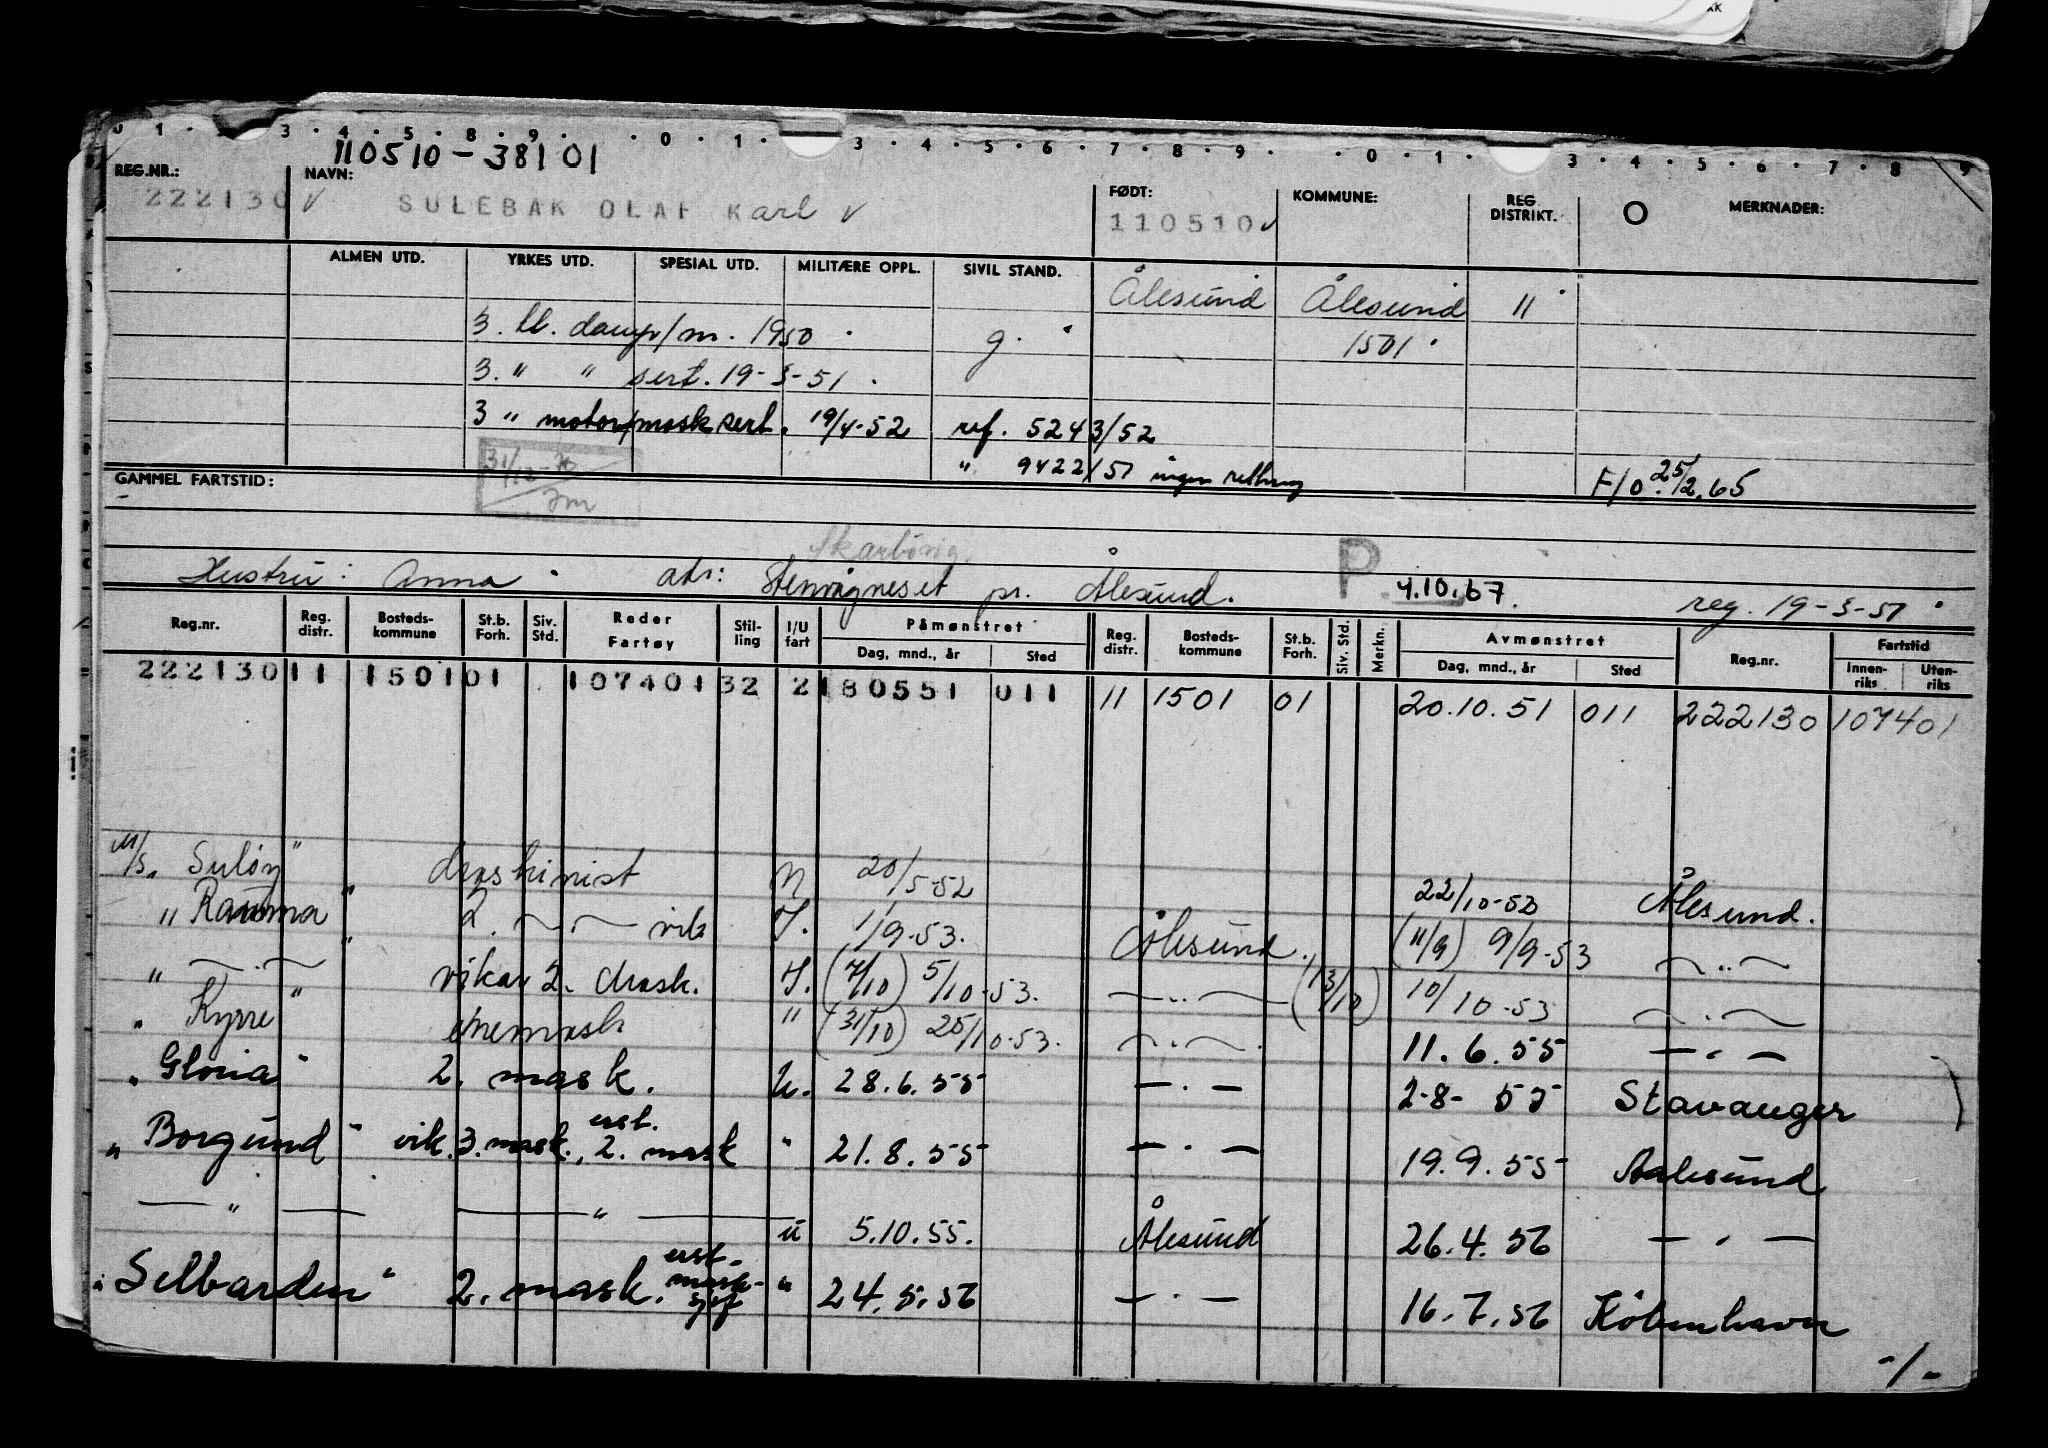 0 1 · 3 · 4 · 5 · 8 · 9 · · 0 · 1 · 3 · 4 · 5 · 6 · 7 · 8 · 9 · · 0 · 1 · 3 · 4 · 5 · 6 · 7 · 8 · 9
110510-38101
REG.NR.: NAVN: FØDT: KOMMUNE: REG. DISTRIKT. O MERKNADER:
222130 √ SULEBAK OLAF Karl √ 110510 √
ALMEN UTD. YRKES UTD. SPESIAL UTD. MILITÆRE OPPL. SIVIL STAND.
Ålesund Ålesund 11
3. kl. damp/m. 1950 g. 1501
3. " " sert. 19-3-51
3 " motor/mask sert. 19/4-52 ref. 5243/52
" 9422/57 ingen rettning
F/o 25/2.65
GAMMEL FARTSTID:
31/12-70
Skarbøvig
Hustru: Anna adr: Stenvågneset pr. Ålesund. P 4.10.67. reg. 19-3-51
Reg.nr. Reg. distr. Bosteds- kommune St.b. Forh. Siv. Std. Reder Fartøy Stil- ling I/U fart Påmønstret Dag, mnd., år Sted Reg. distr. Bosteds- kommune St.b. Forh. Siv. Std. Merkn. Avmønstret Dag, mnd., år Sted Reg.nr. Fartstid Innen- riks Uten- riks
222130 11 1501 01 107401 32 2 180551 011 11 1501 01 20.10.51 011 222130 107401
M/S. Suløy" maskinist N 20/5-52 22/10-52 Ålesund.
" Rauma " 2. — " — vik I. 1/9-53. Ålesund. (11/9) 9/9-53 — " —
" — " — " vikar 2. mask. I. (7/10) 5/10-53. — " — (13/10) 10/10-53 — " —
" Kyrre " enemask " (31/10) 25/10-53. — " — 11.6.55 — " —
" Gloria " 2. mask. u. 28.6.55 — " — 2-8-55 Stavanger
" Borgund " vik. 3. mask., erst. 2. mask " 21.8.55 — " — 19.9.55 Aalesund
— " — — " — u 5.10.55. Ålesund 26.4.56 — " —
" Selbarden " 2. mask. erst. mask- " 24.5.56 — " — 16.7.56 København
-/-